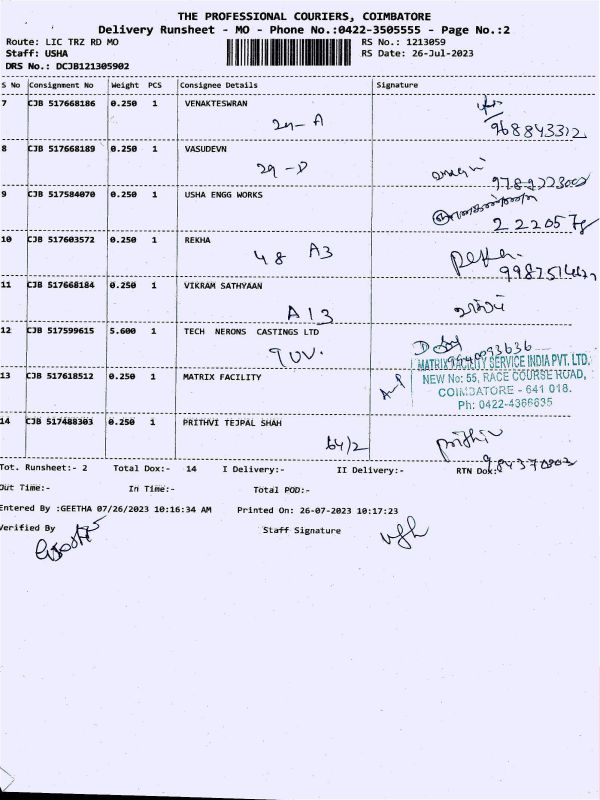 THE PROFESSIONAL COURIERS, COIMBATORE
Delivery Runsheet - MO - Phone No.:0422-3505555 - Page No.:2
Route: LIC TRZ RD MO
RS No.: 1213059
Staff: USHA
RS Date: 26-Jul-2023
DRS No.: DCJB121305902
S No Consignment No Weight PCS Consignee Details Signature
7 CJB 517668186 0.250 1 VENAKTESWRAN
29-A
968843312
8 CJB 517668189 0.250 1 VASUDEVN
29-D
9 CJB 517584070 0.250 1 USHA ENGG WORKS
222057
10 CJB 517603572 0.250 1 REKHA
48 A3
Rekha.
11 CJB 517668184 0.250 1 VIKRAM SATHYAAN
A13
12 CJB 517599615 5.600 1 TECH NERONS CASTINGS LTD
MATRIX FACILITY SERVICE INDIA PVT. LTD.
13 CJB 517618512 0.250 1 MATRIX FACILITY
NEW No: 55, RACE COURSE ROAD,
COIMBATORE - 641 018.
Ph: 0422-4366635
14 CJB 517488303 0.250 1 PRITHVI TEJPAL SHAH
64/2
Tot. Runsheet:- 2 Total Dox:- 14 I Delivery:- II Delivery:- RTN Dox:
Out Time:- In Time:- Total POD:-
Entered By :GEETHA 07/26/2023 10:16:34 AM Printed On: 26-07-2023 10:17:23
Verified By Staff Signature